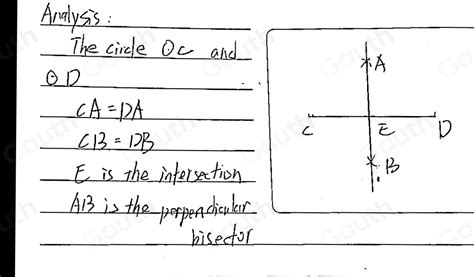 Analysis:
The circle ⊙C and
⊙D
CA = DA
CB = DB
E is the intersection
AB is the perpendicular
bisector
A
C
E
D
B